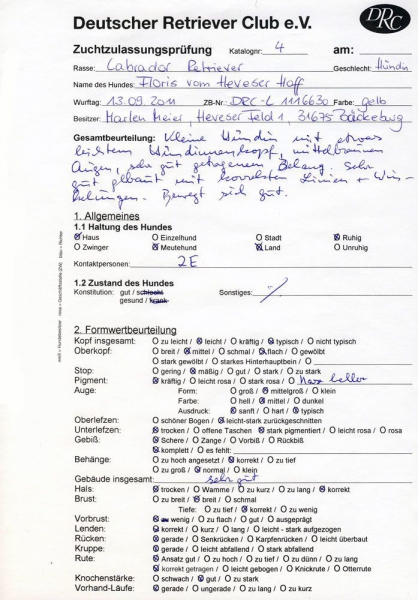 Deutscher Retriever Club e.V.
DRC
Zuchtzulassungsprüfung Katalognr: 4 am:
Rasse: Labrador Retriever Geschlecht: Hündin
Name des Hundes: Floris vom Heveser Hoff
Wurftag: 13.09.2011 ZB-Nr: DRC-L 1116630 Farbe: gelb
Besitzer: Marlen Meier, Heveser Feld 1, 31675 Bückeburg
Gesamtbeurteilung: Kleine Hündin mit etwas
leichtem Hündinnenkopf, mittelbraunen
Augen, sehr gut getragenem Behang. Sehr
gut gebaut mit korrekten Linien + Win-
kelungen. Bewegt sich gut.
1. Allgemeines
1.1 Haltung des Hundes
Haus O Einzelhund O Stadt Ruhig
O Zwinger Meutehund Land O Unruhig
Kontaktpersonen: 2E
1.2 Zustand des Hundes
Konstitution: gut / schlecht Sonstiges:
gesund / krank
2. Formwertbeurteilung
Kopf insgesamt: O zu leicht / leicht / O kräftig / typisch / O nicht typisch
Oberkopf: O breit / mittel / O schmal / flach / O gewölbt
O stark gewölbt / O starkes Hinterhauptbein / O
Stop: O gering / mäßig / O gut / O stark / O zu stark
Pigment: kräftig / O leicht rosa / O stark rosa / O Nase heller
Auge: Form: O groß / mittelgroß / O klein
Farbe: O hell / mittel / O dunkel
Ausdruck: sanft / O hart / typisch
Oberlefzen: O schöner Bogen / leicht-stark zurückgeschnitten
Unterlefzen: trocken / O offene Taschen stark pigmentiert / O leicht rosa / O rosa
Gebiß: Schere / O Zange / O Vorbiß / O Rückbiß
komplett / O es fehlt:
Behänge: O zu hoch angesetzt / korrekt / O zu tief
O zu groß / normal / O klein
Gebäude insgesamt: sehr gut
Hals: trocken / O Wamme / O zu kurz / O zu lang / korrekt
Brust: O zu breit / breit / O schmal
Tiefe: O zu tief / korrekt / O zu wenig
Vorbrust: zu wenig / O zu flach / O gut / O ausgeprägt
Lenden: korrekt / O kurz / O lang / O leicht - stark aufgezogen
Rücken: gerade / O Senkrücken / O Karpfenrücken / O leicht überbaut
Kruppe: gerade / O leicht abfallend / O stark abfallend
Rute: Ansatz gut / O zu hoch / O zu tief / O zu dünn / O zu lang
korrekt getragen / O leicht gebogen / O Knickrute / O Otterrute
Knochenstärke: O schwach / gut / O zu stark
Vorhand-Läufe: gerade / O ungerade / O zu lang / O zu kurz